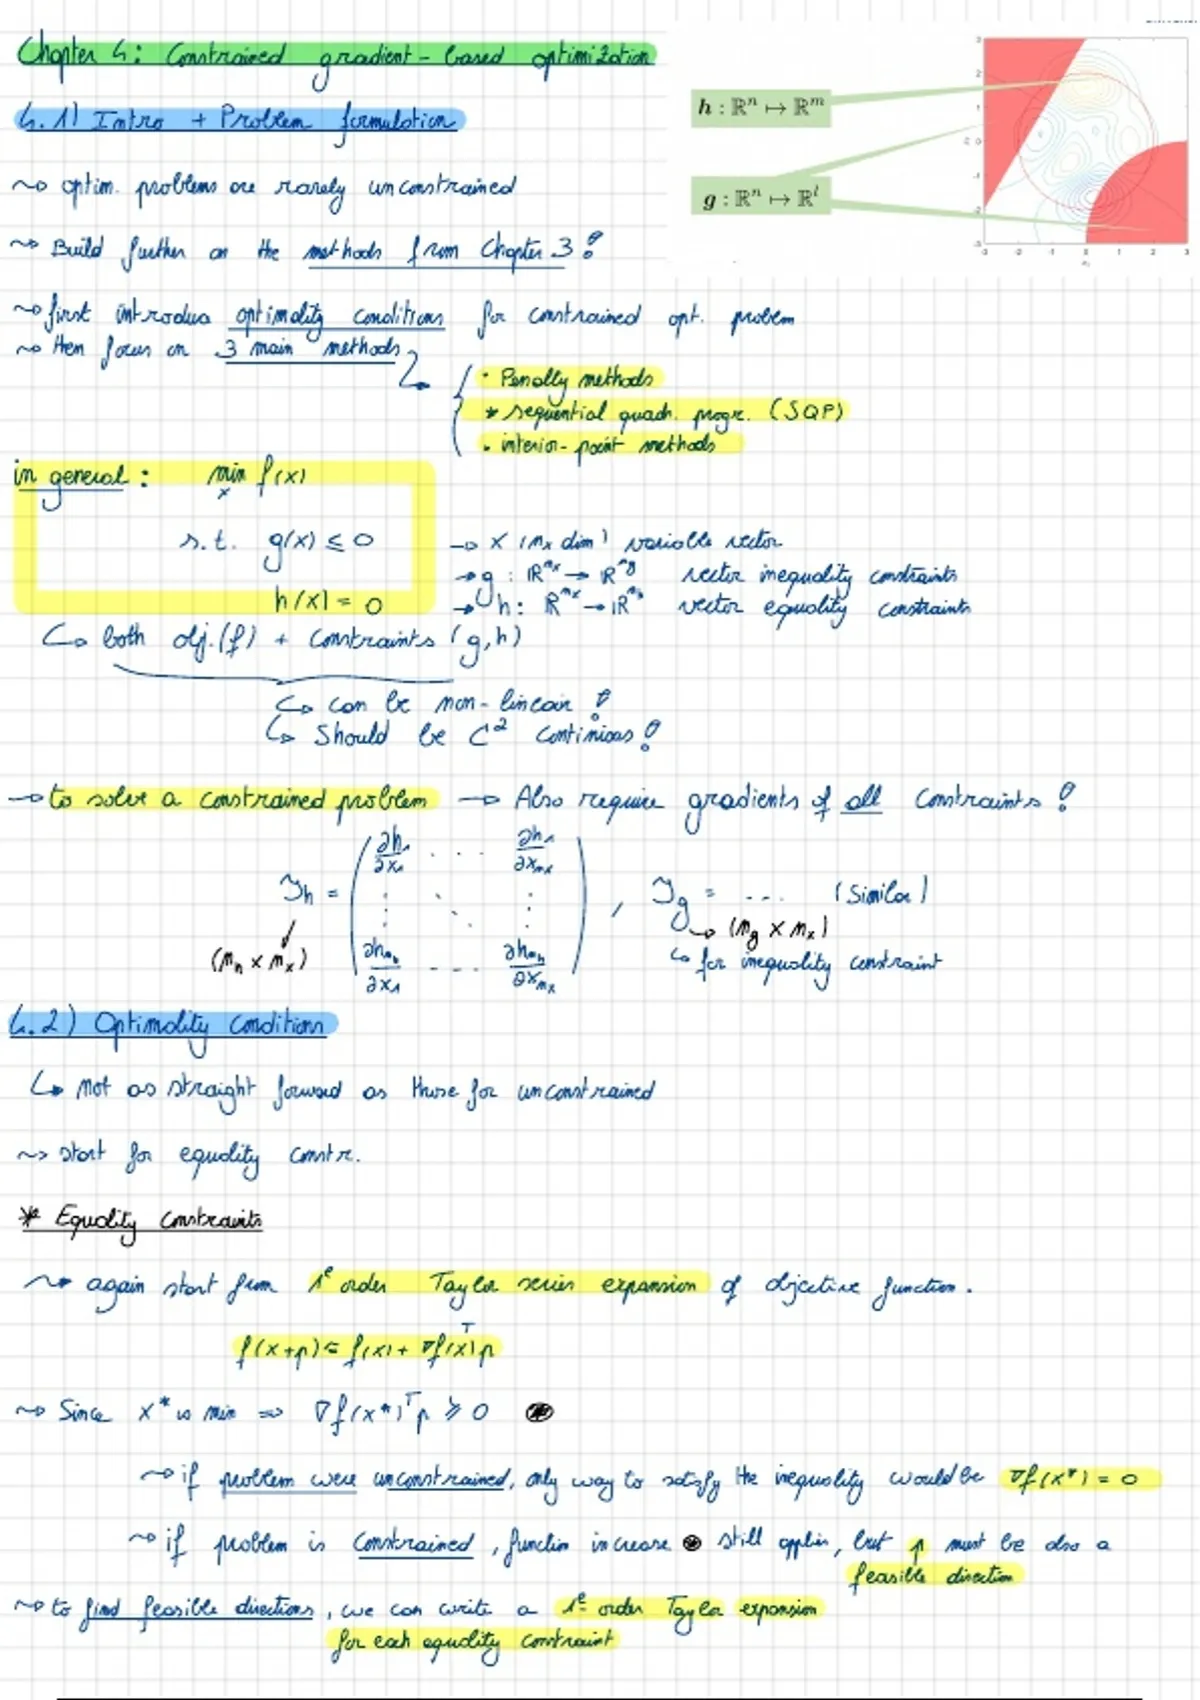 Chapter 4: Constrained gradient-based optimization
4.1) Intro + Problem formulation
h : ℝⁿ ↦ ℝᵐ
g : ℝⁿ ↦ ℝˡ
~> optim. problems are rarely unconstrained
~> Build further on the methods from Chapter 3!
~> first introduce optimality conditions for constrained opt. problem
~> then focus on 3 main methods
• Penalty methods
* sequential quadr. progr. (SQP)
• interior-point methods
in general: min f(x)
x
s.t. g(x) ≤ 0 → x (nx dim) variable vector
→ g : ℝ^nx → ℝ^ng vector inequality constraints
h(x) = 0 → h : ℝ^nx → ℝ^nh vector equality constraints
↳ both obj.(f) + constraints (g,h)
↳ can be non-linear!
↳ Should be C² continious!
→ to solve a constrained problem → Also require gradients of all constraints!
∂h₁/∂x₁ ... ∂h₁/∂x_nx
J_h = ⋮ ⋱ ⋮ , J_g = .... (Similar)
(n_h x n_x) ↳ (n_g x n_x)
∂h_nh/∂x₁ ... ∂h_nh/∂x_nx ↳ for inequality constraint
4.2) Optimality conditions
↳ not as straight forward as those for unconstrained
~> start for equality constr.
* Equality constraints
~> again start from 1e order Taylor series expansion of objective function.
f(x+p) ≈ f(x) + ∇f(x)ᵀp
~> Since x* is min => ∇f(x*)ᵀp ≥ 0
~> if problem were unconstrained, only way to satisfy the inequality would be ∇f(x*) = 0
~> if problem is constrained, function increase ⊛ still applies, but p must be also a
feasible direction
~> to find feasible directions, we can write a 1e order Taylor expansion
for each equality constraint